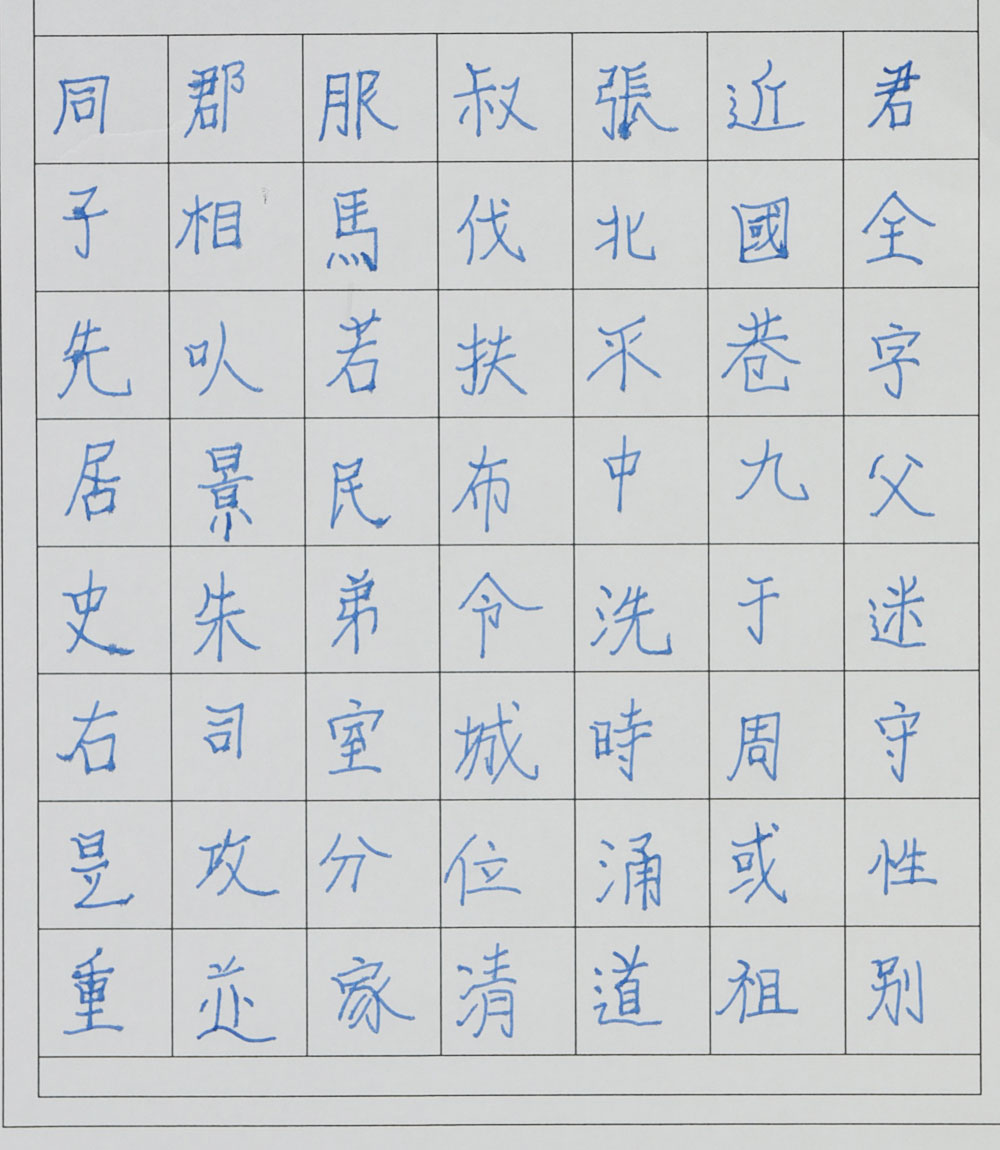 君全字父迷守性别
近國巷九于周或祖
張北采中洗時涌道
叔伐扶布令城位清
服馬若民弟室分家
郡相叺景朱司攻
同子先居史右是重